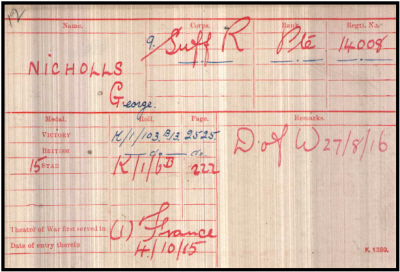 Name. Corps. Rank. Regtl. No.
9. Suff R Pte 14008
NICHOLLS
George.
Medal. Roll. Page. Remarks.
VICTORY K/1/103.B13. 2525 D of W 27/8/16
BRITISH do do
15 STAR K/1/6B 222
Theatre of War first served in (1) France
Date of entry therein 4/10/15
K. 1380.